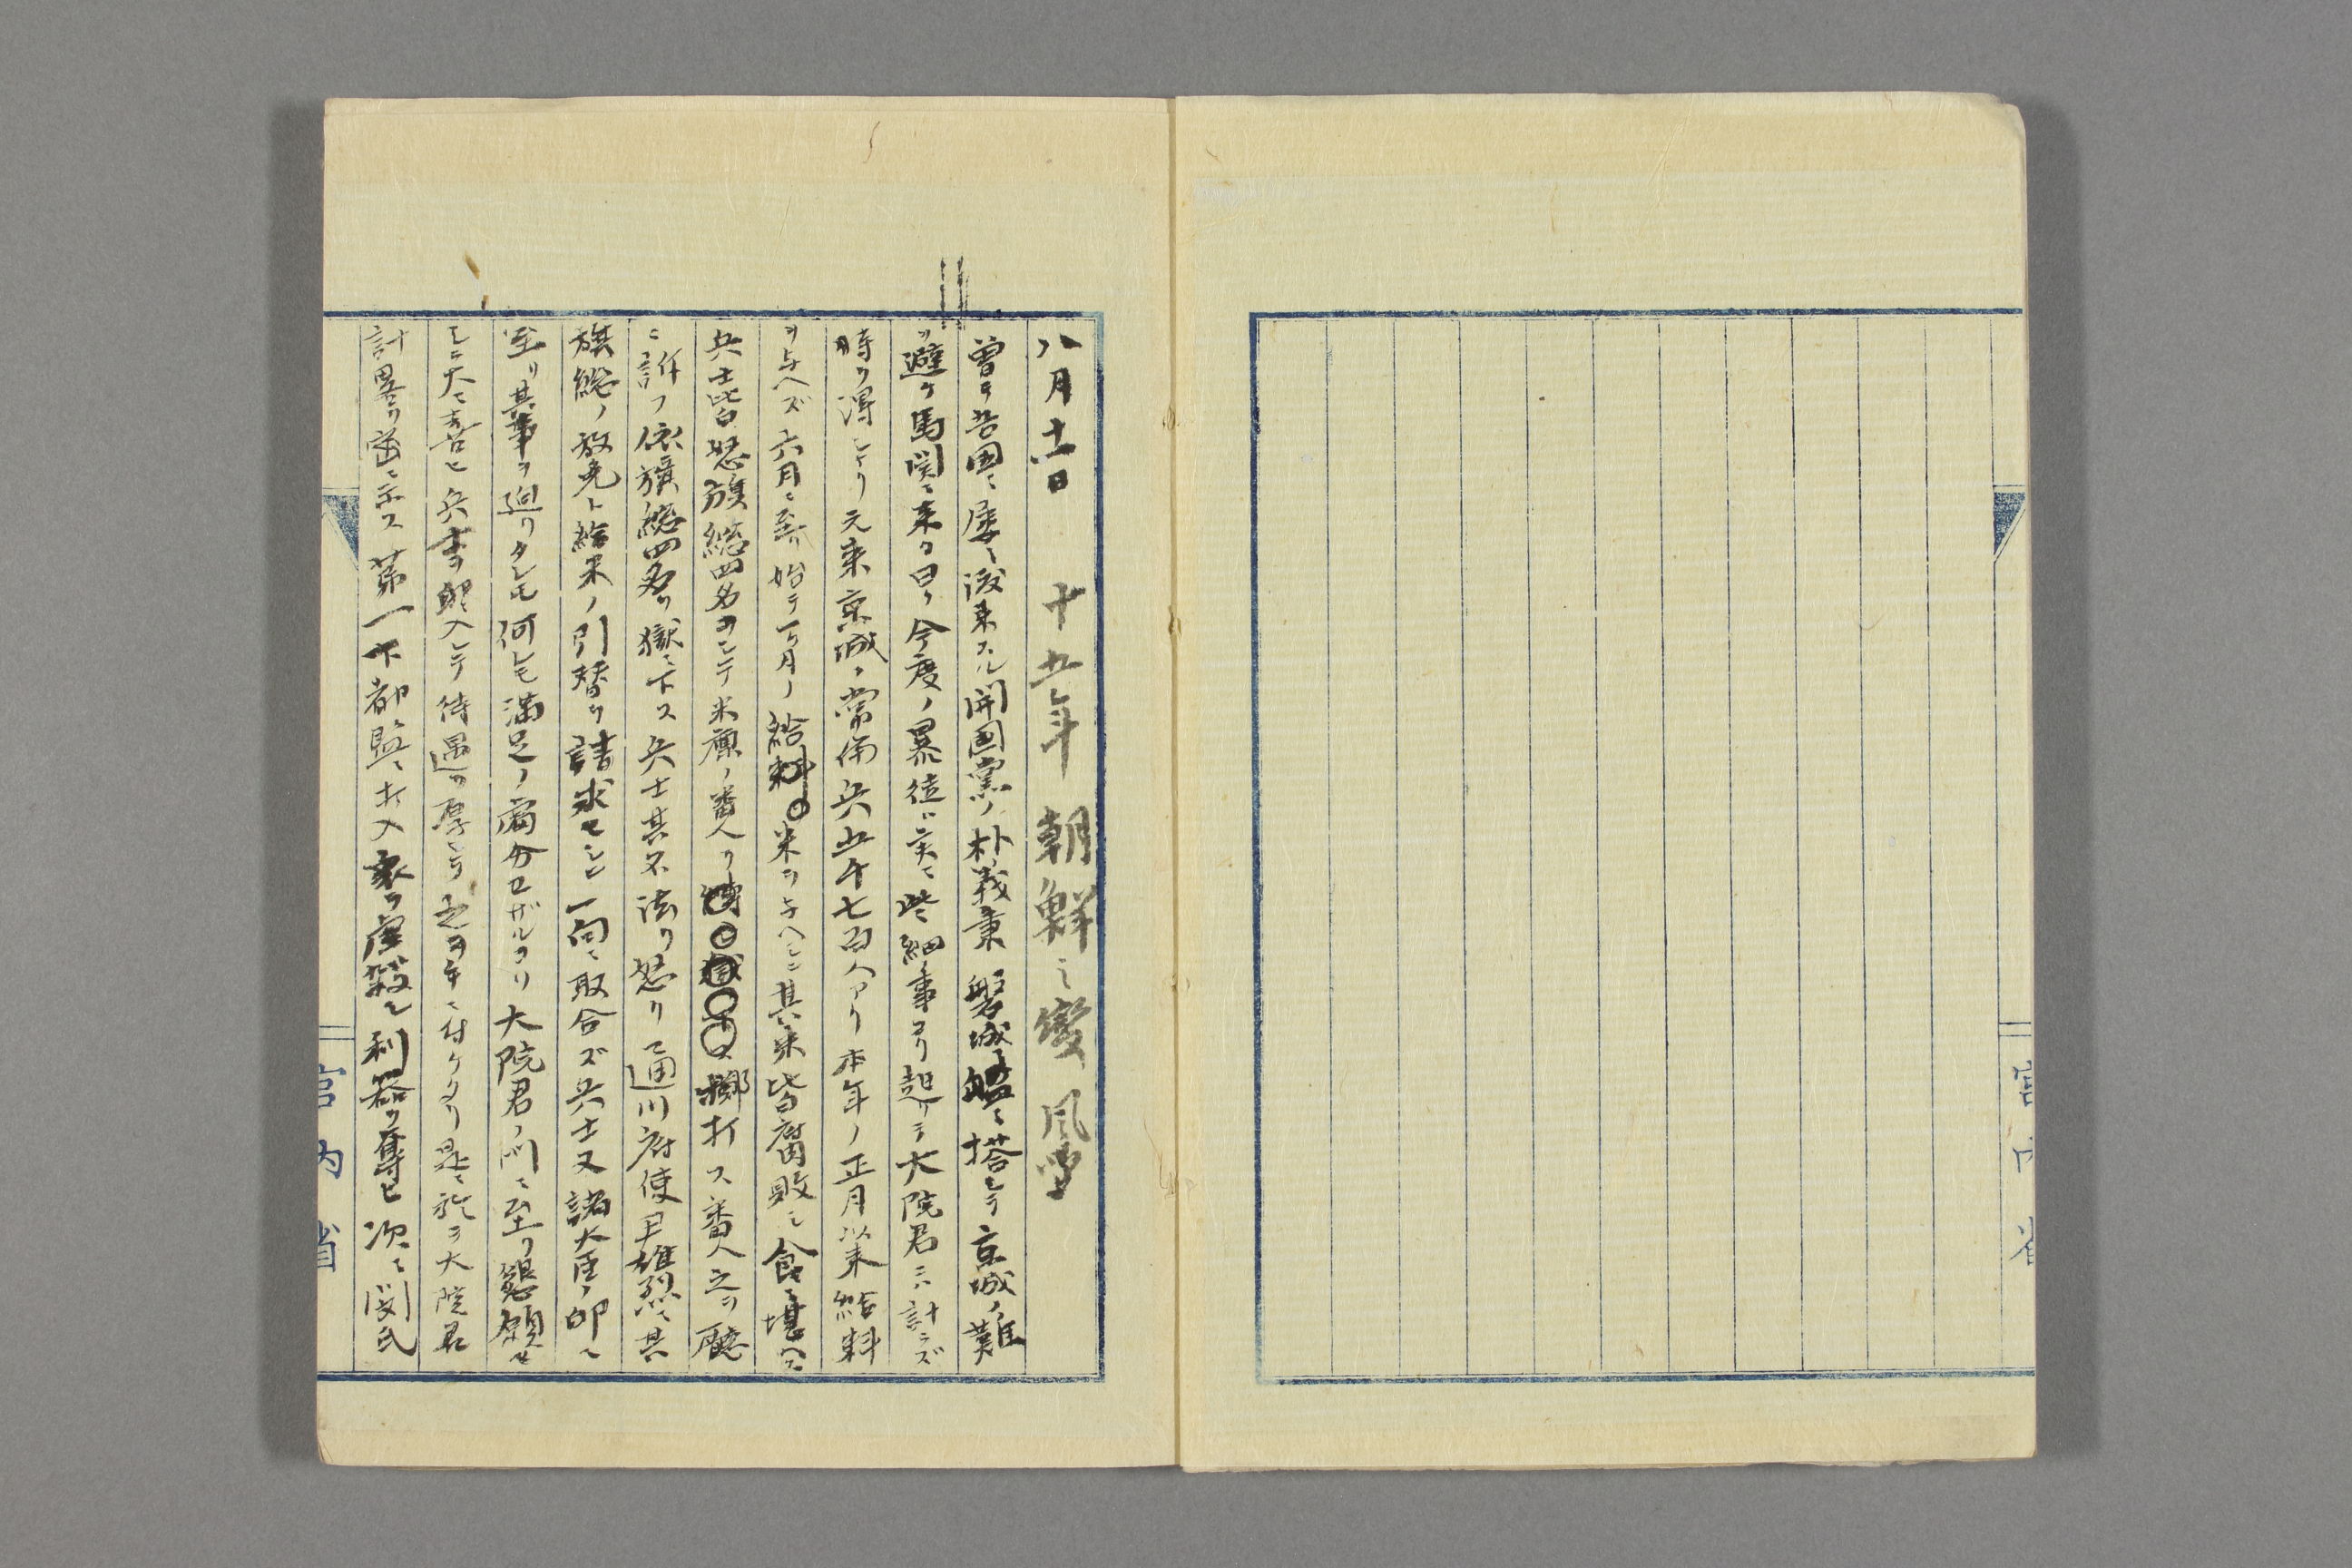 八月十一日　十五年朝鮮之變風聞
曽テ吾国ニ屡々渡来スル開国黨ノ朴義秉磐城艦ニ搭シテ京城ノ難
ヲ避ケ馬関ニ来ラ曰ク今度ノ暴徒ハ実ニ些細ノ事ヨリ起リテ大院君ニハ計ラズ
時ヲ得シナリ元来京城ニ常備兵五千七百人アリ本年ノ正月以来給料
ヲ与ヘズ六月ニ至リ始テ一ヶ月ノ給料ノ米ヲ与ヘシニ其米皆腐敗シ食ニ堪ヘズ
兵士皆怒旗総四名ヲシテ米廩ノ番人ヲ擲打ス番人之ヲ廳
ニ訴フ依旗総四名ヲ獄ニ下ス兵士其不法ヲ怒リテ通川府使尹雄烈ニ其
旗総ノ放免ト給米ノ引替ヲ請求セシニ一向ニ取合ズ兵士又諸大臣ノ邸ニ
至リ其事ヲ廻リタレ𪜈何レモ満足ノ處分ロザルヨリ大院君ノ門ニ至リ懇願セ
シニ大ニ喜ヒ兵士ヲ邸入レテ待遇ヲ厚シ之ヲ手ニ付ケタリ是ニ於テ大院君
計畧ヲ密ニ示ス第一下都監ニ打入衆ヲ虐殺シ利器ヲ奪ヒ次ニ閔氏
宮内省
宮内省